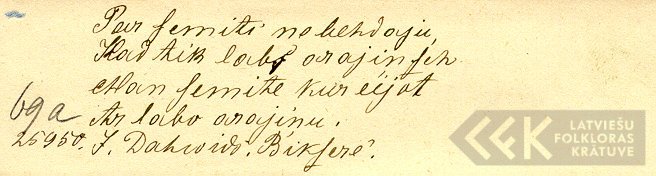 Par semiti nobehdaju,
Kad tik labs arajinsch
Man semite kur eijot
Ar labo arajinu.
69a
25950. J. Dahwids. Biksere.
LATVIEŠU
FOLKLORAS
KRĀTUVE